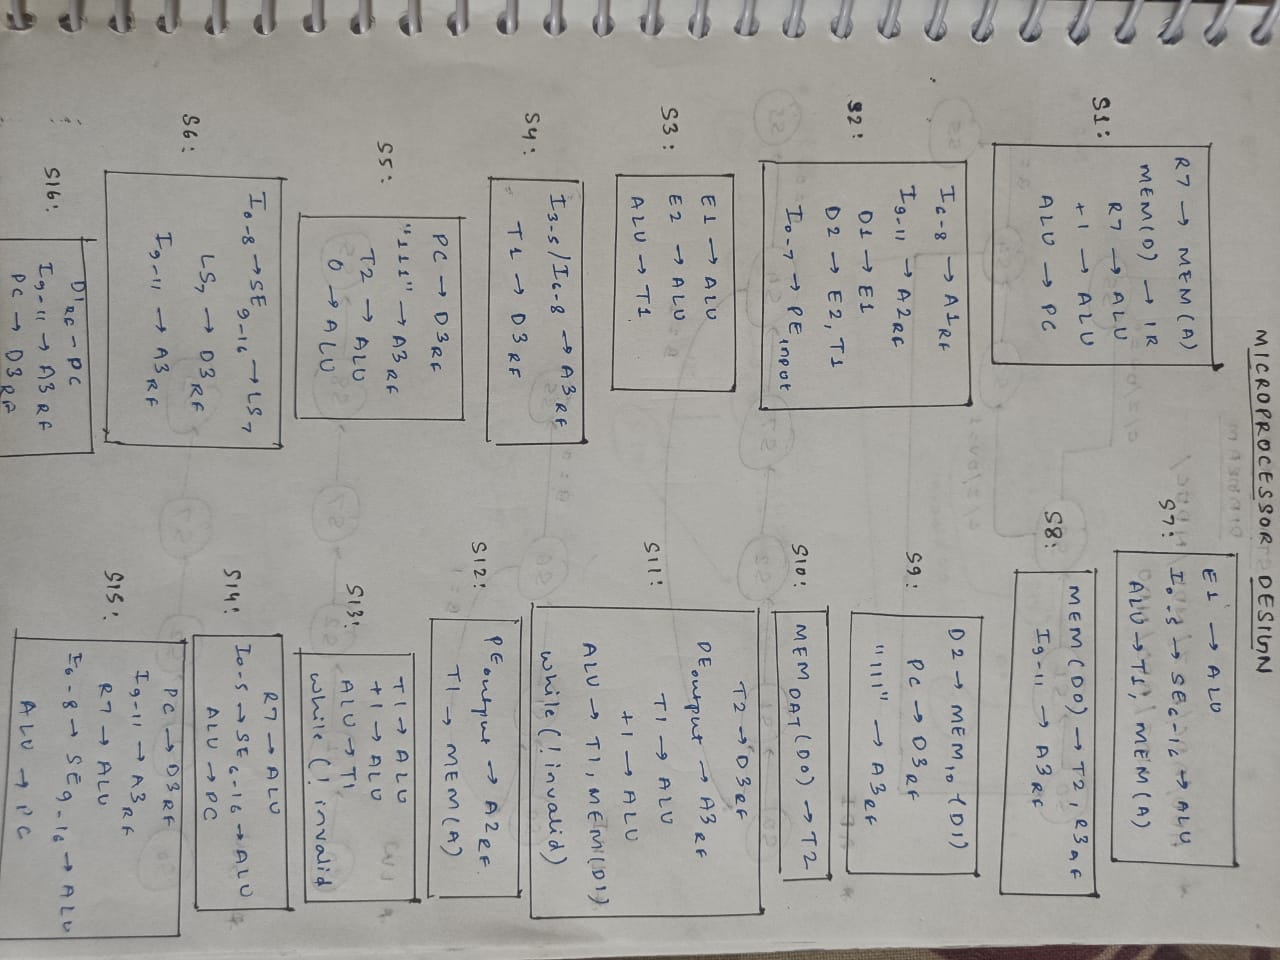 MICROPROCESSOR DESIGN
S1:
R7 → MEM(A)
MEM(D) → IR
R7 → ALU
+1 → ALU
ALU → PC
S2:
I6-8 → A1RF
I9-11 → A2RF
D1 → E1
D2 → E2, T1
I0-7 → PEinput
S3:
E1 → ALU
E2 → ALU
ALU → T1
S4:
I3-5/I6-8 → A3RF
T1 → D3RF
S5:
PC → D3RF
"111" → A3RF
T2 → ALU
0 → ALU
S6:
I0-8 → SE9-16 → LS7
LS7 → D3RF
I9-11 → A3RF
S16:
D1RF - PC
I9-11 → A3RF
PC → D3RF
S7:
E1 → ALU
I0-5 → SE6-16 → ALU
ALU → T1, MEM(A)
S8:
MEM(DO) → T2,
I9-11 → A3RF
S9:
D2 → (DI)
PC → D3RF
"111" → A3RF
S10:
MEMDAT(DO) → T2
S11:
T2 → D3RF
PEoutput → A3RF
T1 → ALU
+1 → ALU
ALU → T1, MEM(DI)
while (! invalid)
S12:
PEoutput → A2RF
T1 → MEM(A)
S13:
T1 → ALU
+1 → ALU
ALU → T1
while (! invalid
S14:
R7 → ALU
I0-5 → SE6-16 → ALU
ALU → PC
S15:
PC → D3RF
I9-11 → A3RF
R7 → ALU
I0-8 → SE9-16 → ALU
ALU → PC